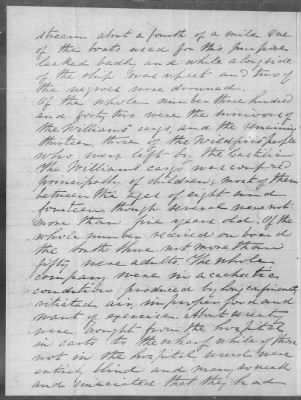 stream about a fourth of a mile. One
of the boats used for this purpose
leaked badly and while alongside
of the ship was upset and two of
the negroes were drowned.
Of the whole number three hundred
and forty two were the survivors of
the Williams' cargo, and the remaining
thirteen, those of the Wildfire's people
who were left by the Castilian
The Williams cargo was composed
principally of children, most of them
between the ages of eight and
fourteen, though several were not
more than five years old. Of the
whole number received on board
the South Shore not more than
fifty were adults. The whole
company were in a cachectic
condition produced by long captivity,
vitiated air, improper food and
want of exercise. About seventy
were brought from the hospital
in carts to the wharf while of those
not in the hospital several were
entirely blind and many so weak
and emaciated that they had